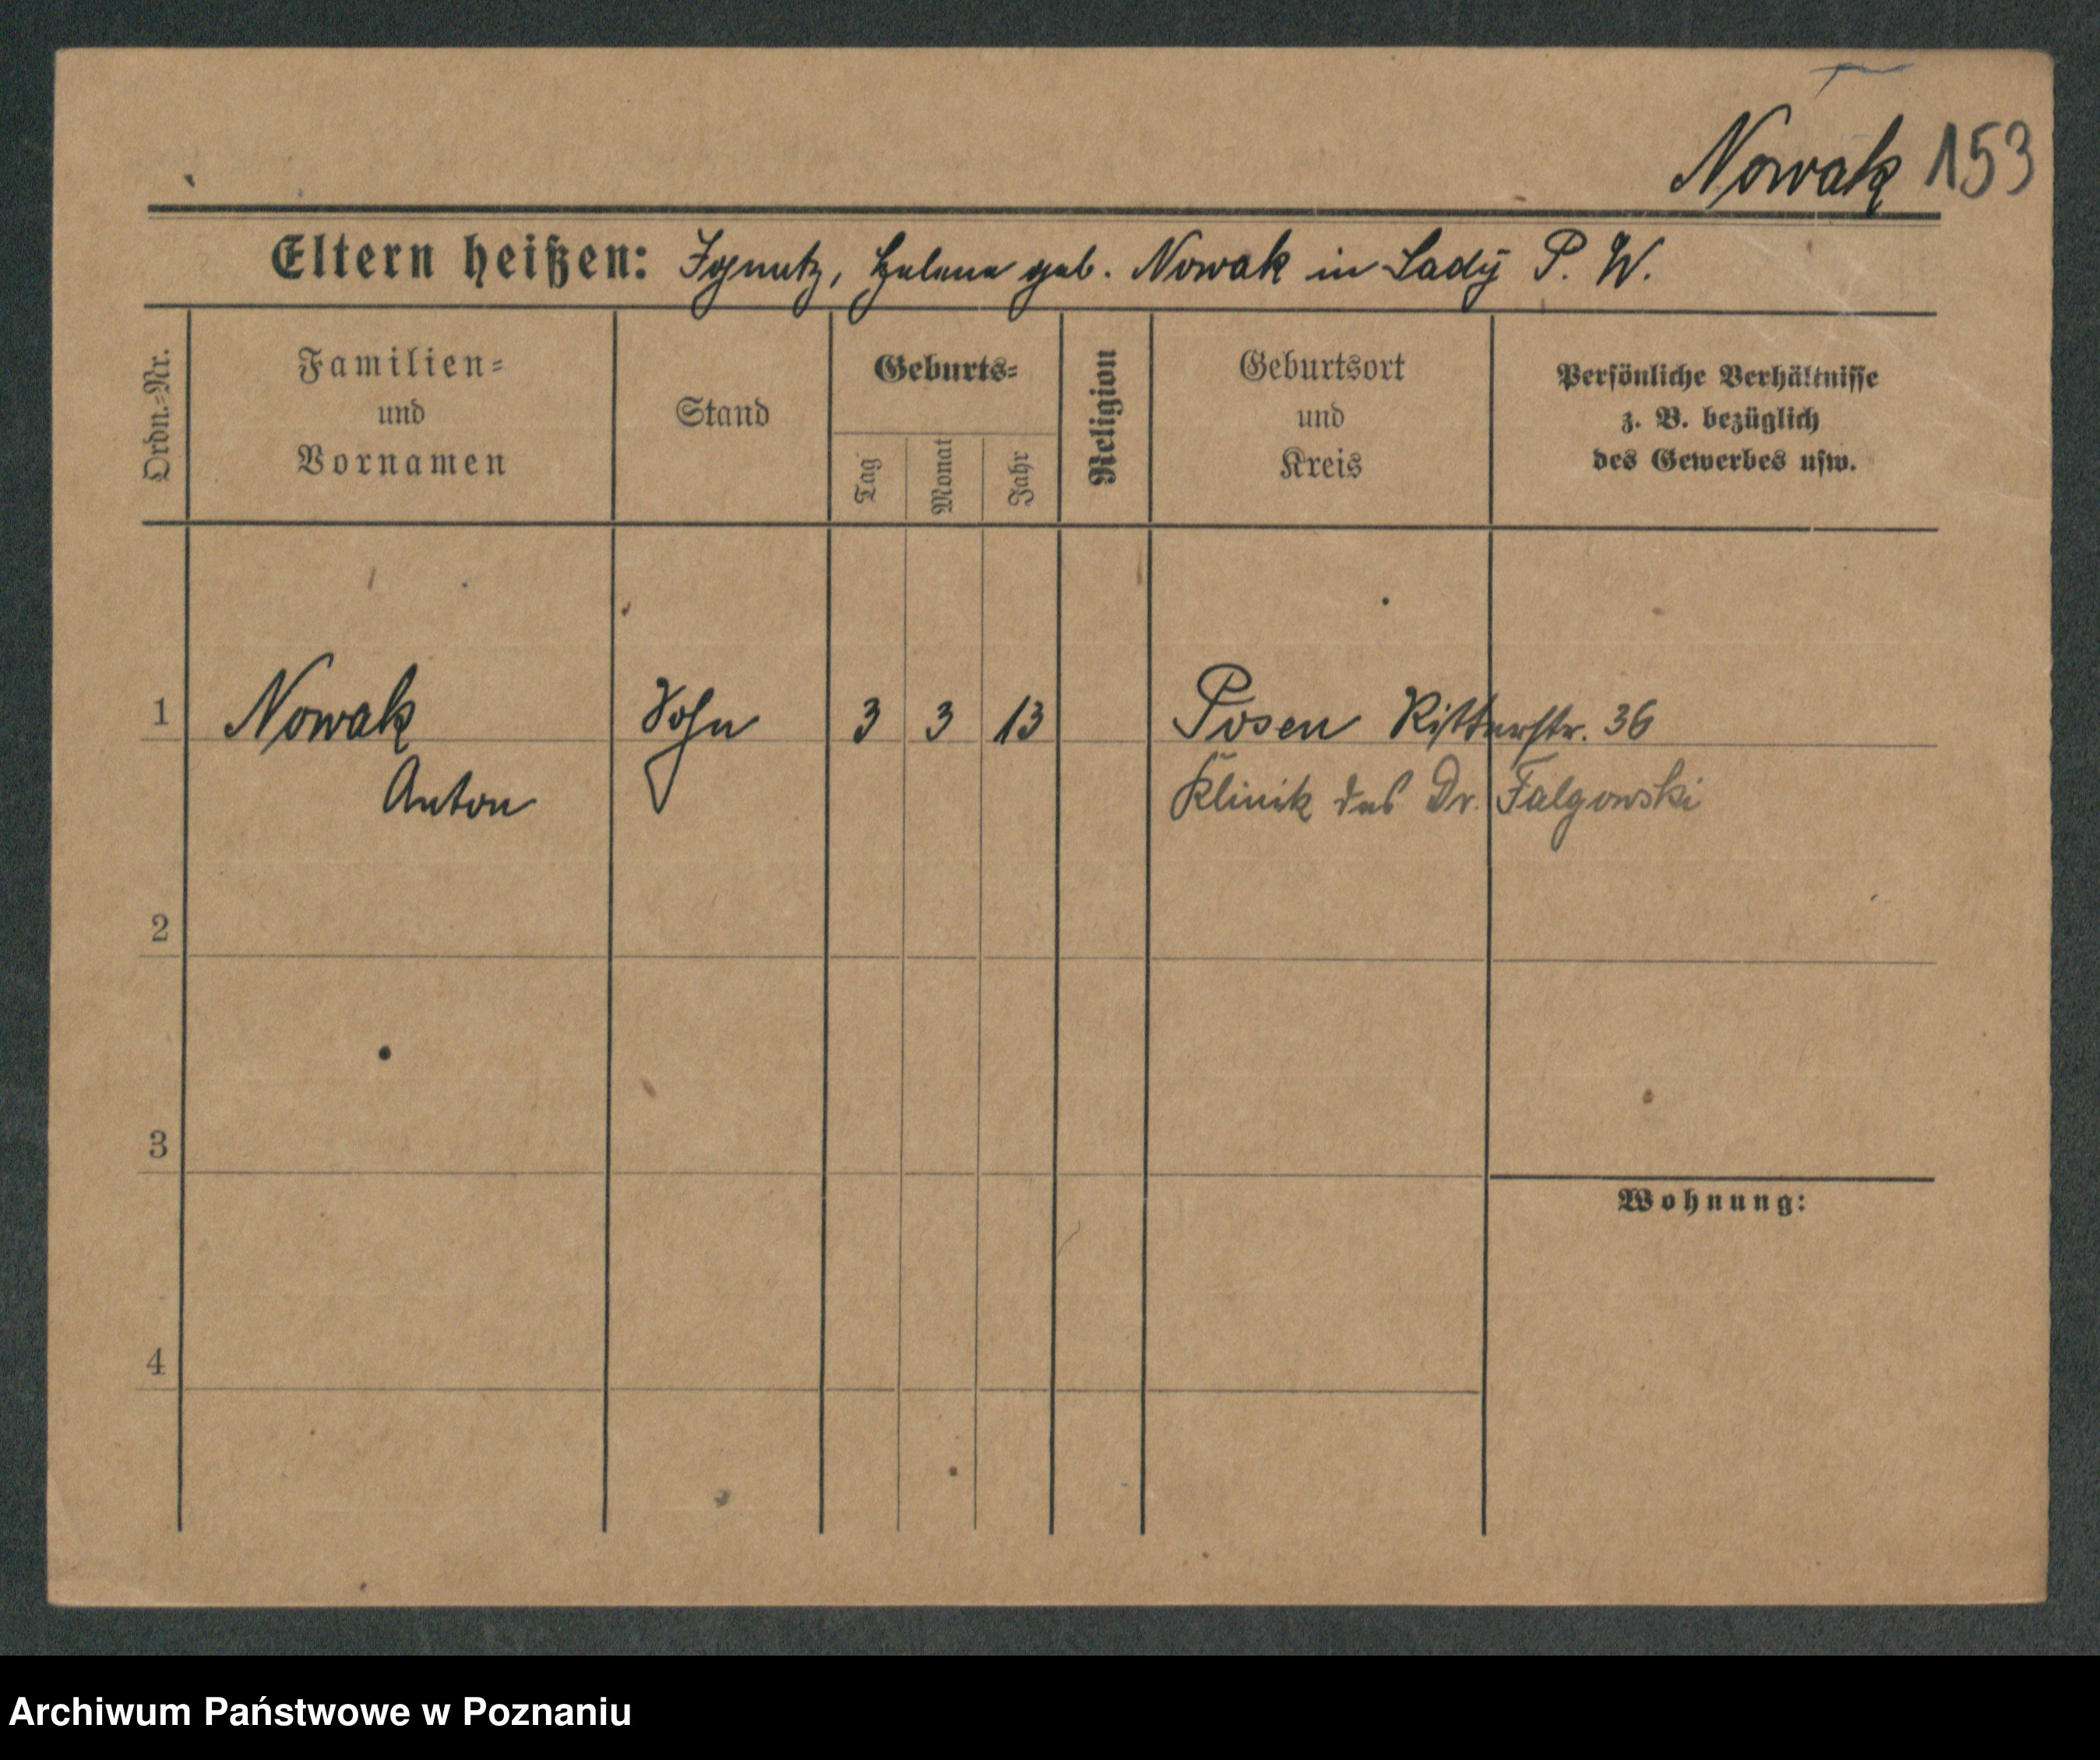 Nowak 153
Eltern heißen: Ignatz, Helene geb. Nowak in Lady P. W.
Ordn.=Nr.
Familien=
und
Vornamen
Stand
Geburts=
Tag
Monat
Jahr
Religion
Geburtsort
und
Kreis
Persönliche Verhältnisse
z. B. bezüglich
des Gewerbes usw.
1 Nowak Sohn 3 3 13 Posen Ritterstr. 36
Anton Klinik des Dr. Falgowski
2
3
Wohnung:
4
Archiwum Państwowe w Poznaniu